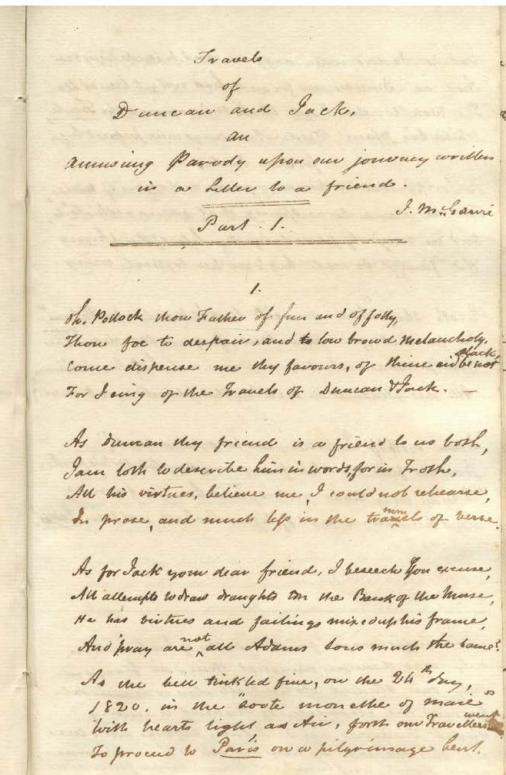 Travels
of
Duncan and Jack,
an
Amusing Parody upon our journey written
in a Letter to a friend.
J. McGavin
Part. 1.
1.
Oh. Pollock thou Father of fun and of folly,
Thou foe to despair, and to low brow'd melancholy,
Come dispense me thy favours, of thine aid be not slack
For I sing of the Travels of Duncan & Jack. —
As Duncan thy friend is a friend to us both,
I am loth to describe him in words, for in Troth,
All his virtues, believe me, I could not rehearse,
In prose, and much less in the trammels of verse.
As for Jack your dear friend, I beseech you excuse,
All attempts to draw draughts on the Bank of the Muse,
He has virtues and failings mixed up his frame,
And pray are not all Adams sons much the same?
As the bell tinkled five, on the 24th day,
1820. in the "soote monethe of maie"
With hearts light as Air, forth our Travellers went
To proceed to Paris on a pilgrimage bent.